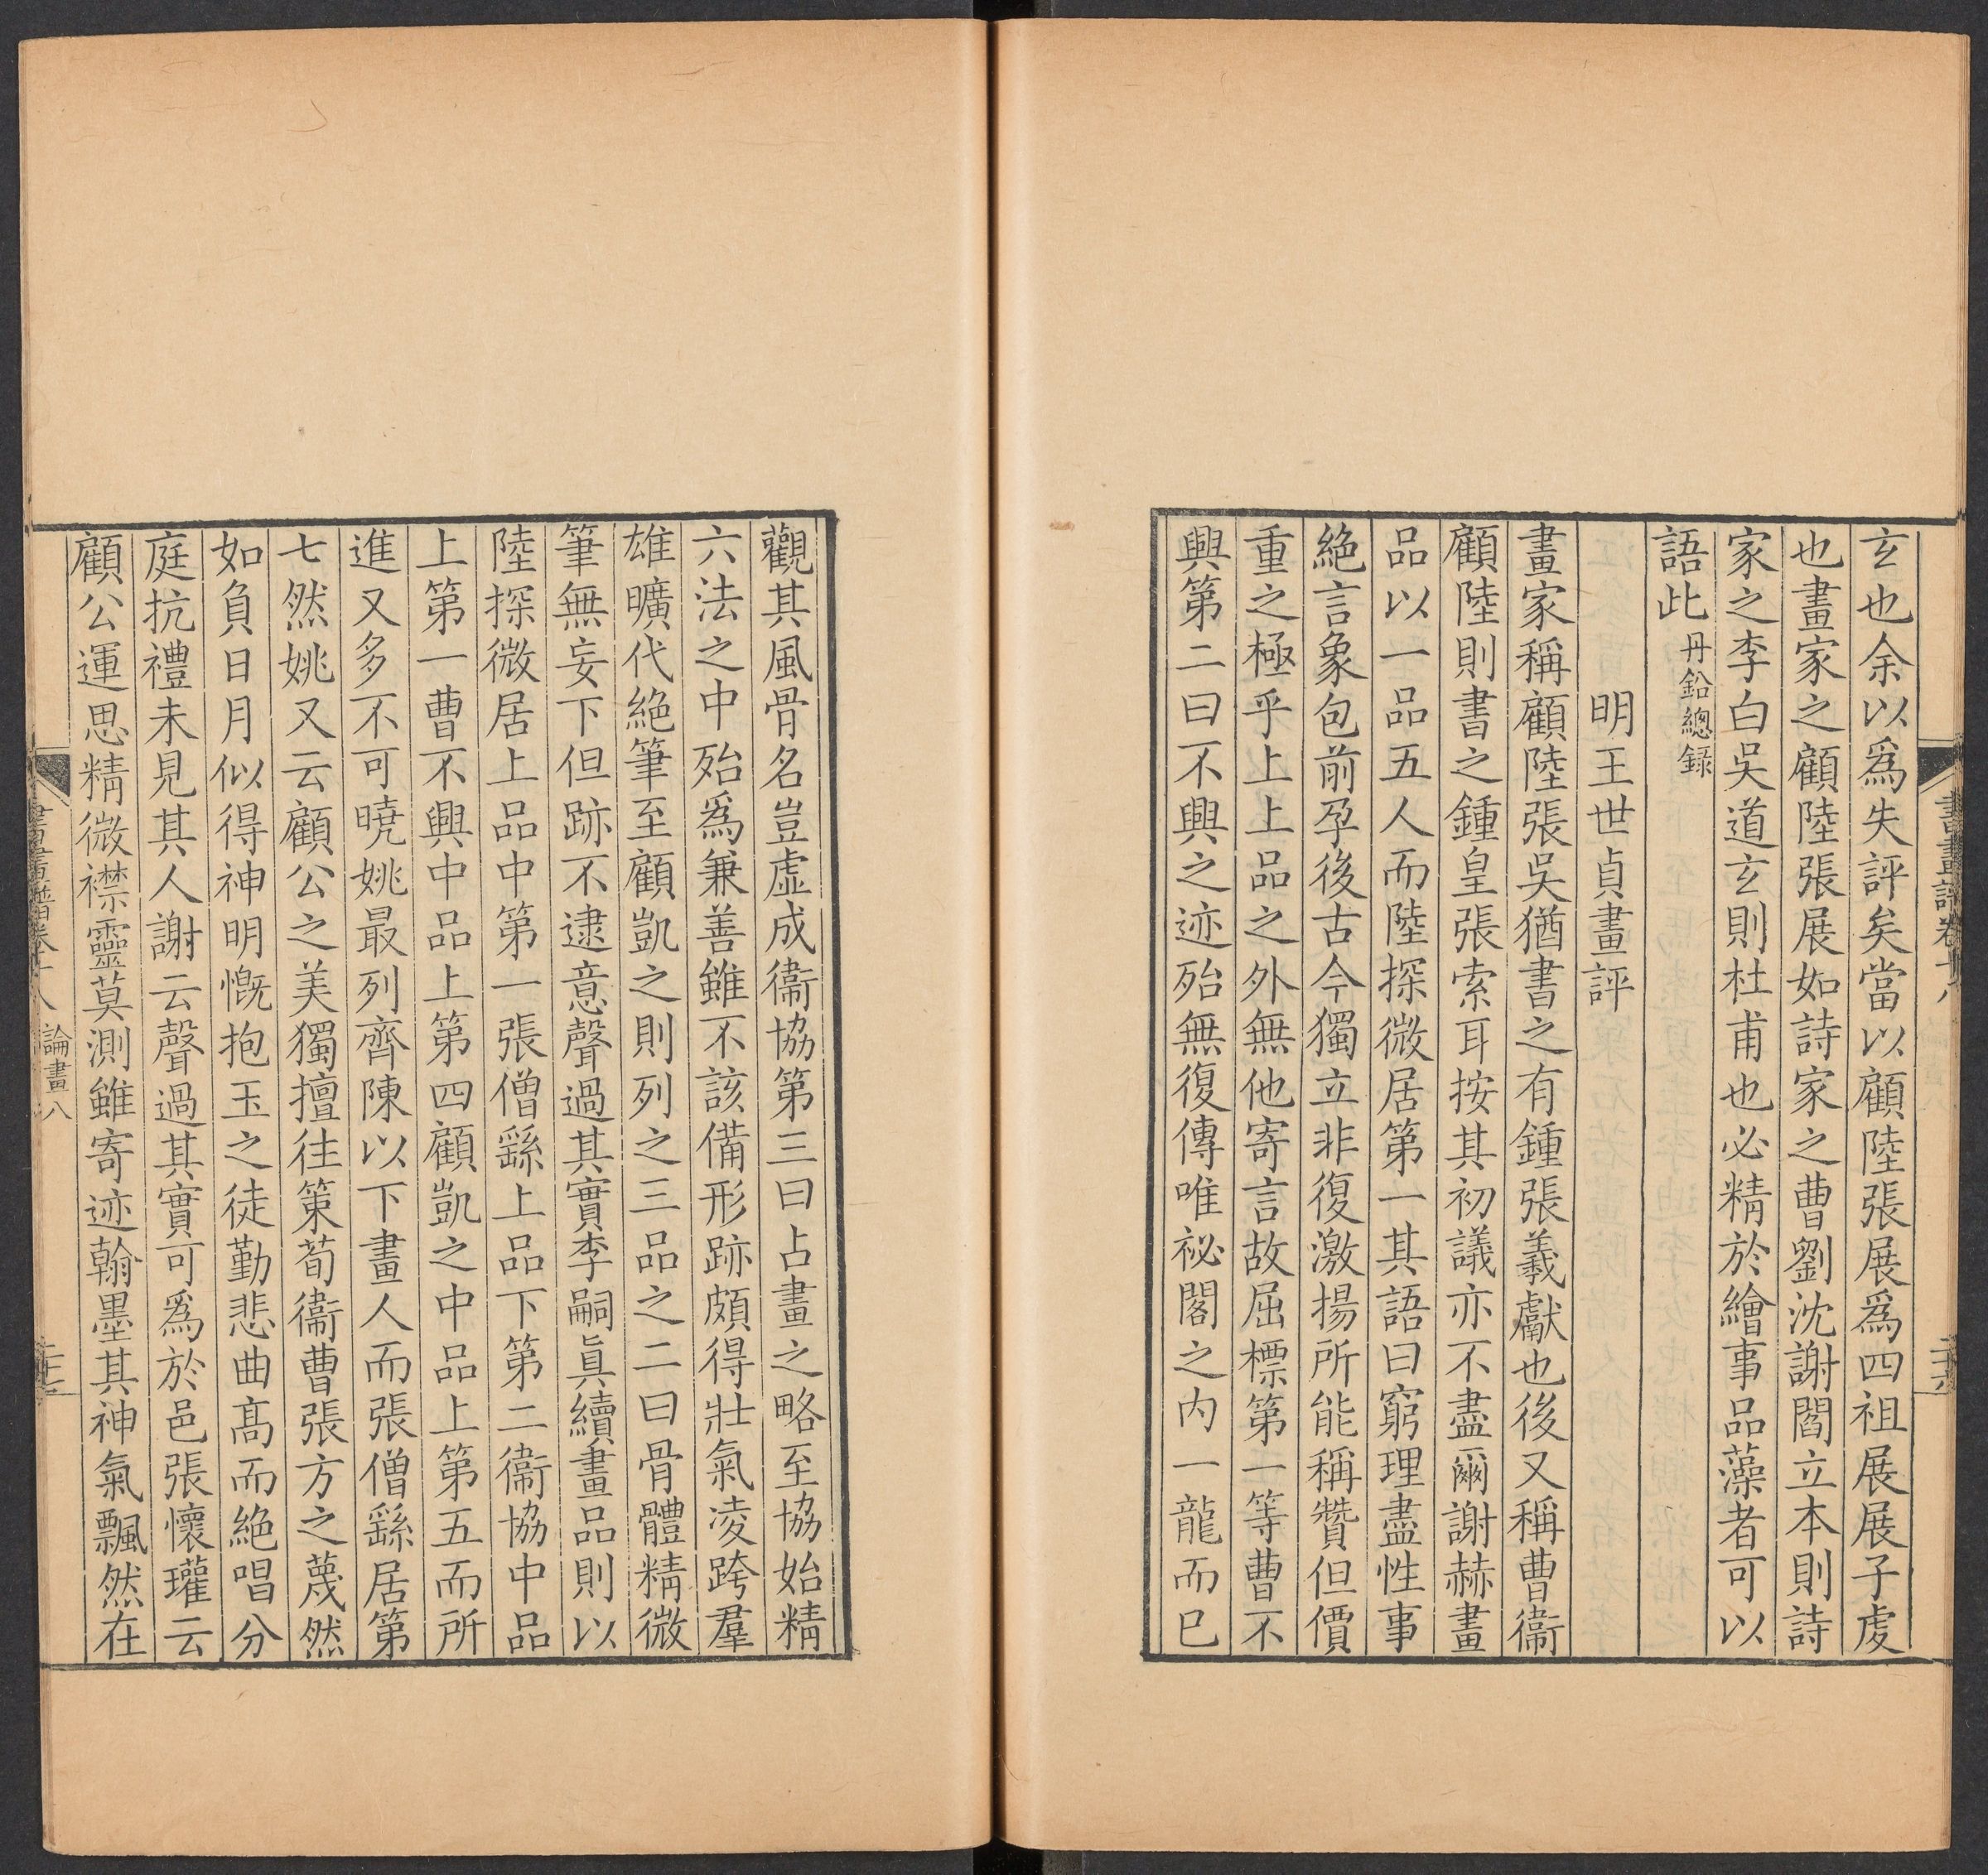 玄也余以爲失評矣當以顧陸張展爲四祖展展子虔
也畫家之顧陸張展如詩家之曹劉沈謝閻立本則詩
家之李白吳道玄則杜甫也必精於繪事品藻者可以
語此丹鉛總錄
明王世貞畫評
畫家稱顧陸張吳猶書之有鍾張羲獻也後又稱曹衞
顧陸則書之鍾皇張索耳按其初議亦不盡爾謝赫畫
品以一品五人而陸探微居第一其語曰窮理盡性事
絕言象包前孕後古今獨立非復激揚所能稱贊但價
重之極乎上上品之外無他寄言故屈標第一等曹不
興第二曰不興之迹殆無復傳唯祕閣之內一龍而已
觀其風骨名豈虛成衞協第三曰占畫之略至協始精
六法之中殆爲兼善雖不該備形跡頗得壯氣凌跨羣
雄曠代絕筆至顧凱之則列之三品之二曰骨體精微
筆無妄下但跡不逮意聲過其實李嗣眞續畫品則以
陸探微居上品中第一張僧繇上品下第二衞協中品
上第一曹不興中品上第四顧凱之中品上第五而所
進又多不可曉姚最列齊陳以下畫人而張僧繇居第
七然姚又云顧公之美獨擅往策荀衞曹張方之蔑然
如負日月似得神明慨抱玉之徒勤悲曲高而絕唱分
庭抗禮未見其人謝云聲過其實可爲於邑張懷瓘云
顧公運思精微襟靈莫測雖寄迹翰墨其神氣飄然在
書畫譜卷十八
論畫八